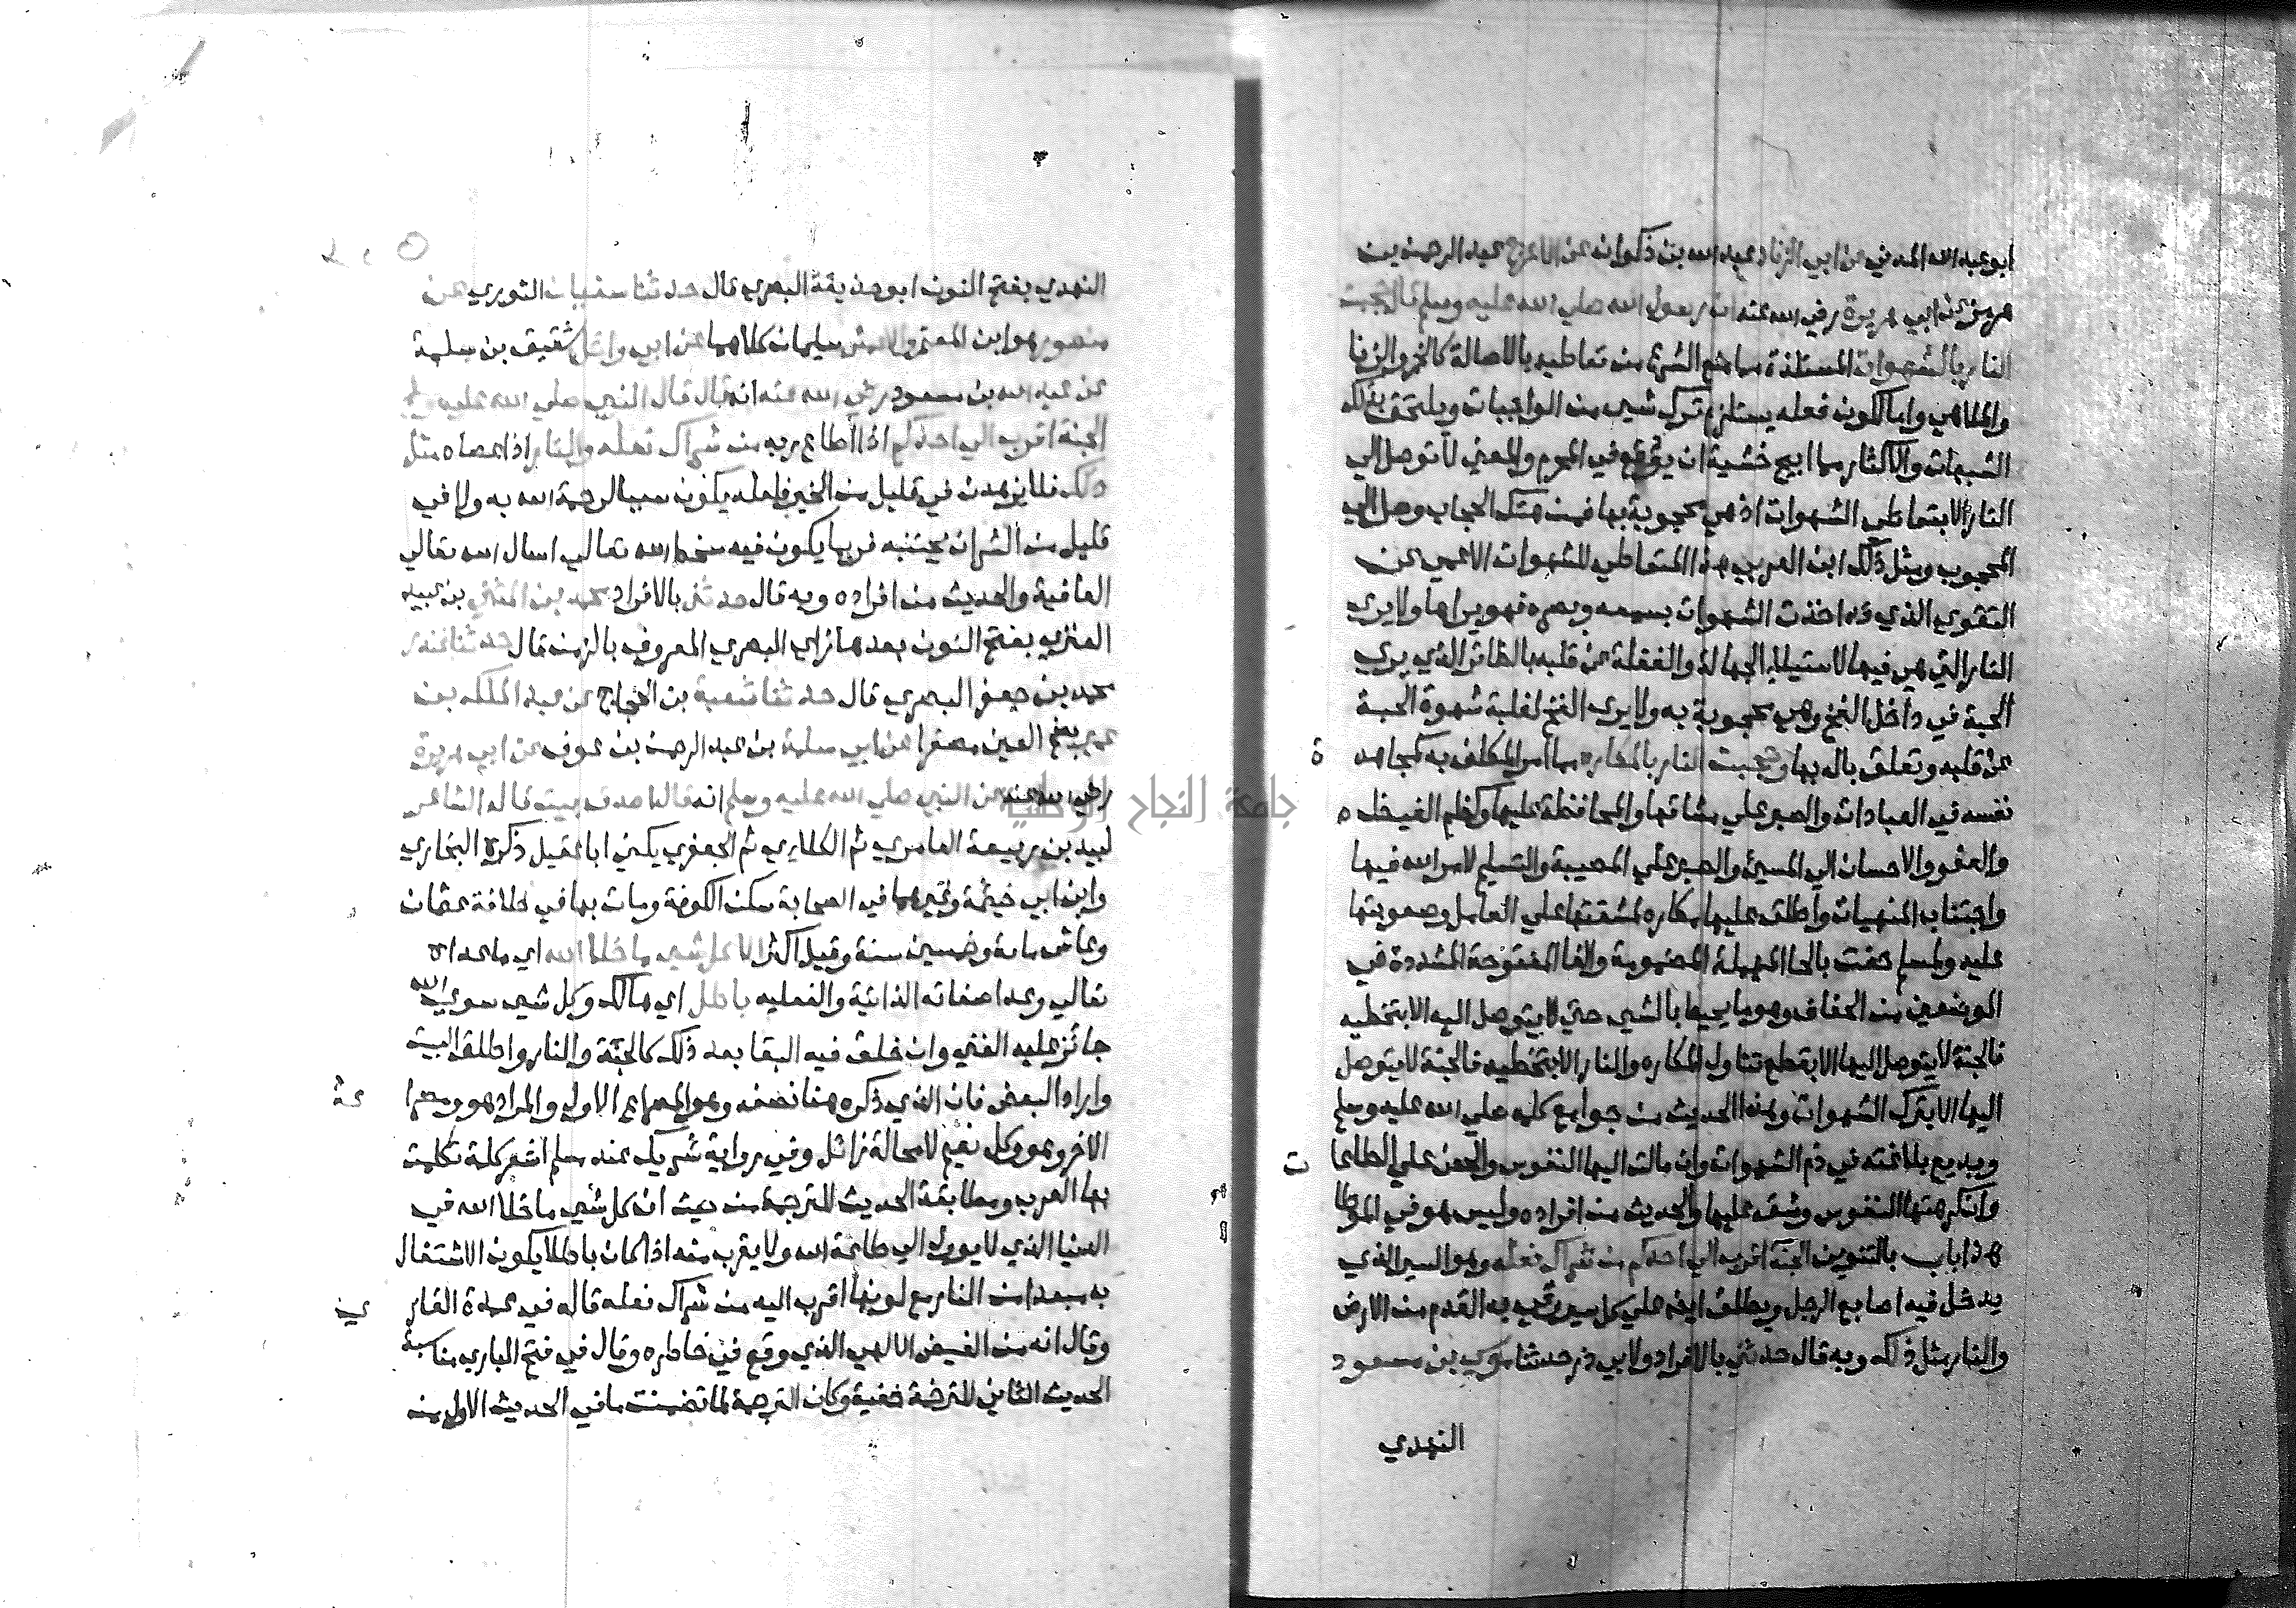 ابو عبد الله المدني عن ابي الزناد عبد الله بن ذكوان عن الاعرج عبد الرحمن بن
هرمز عن ابي هريرة رضي الله عنه ان رسول الله صلي الله عليه وسلم قال حجبت
النار بالشهوات المستلذة مما منع الشرع من تعاطيه بالاصالة كالخمر والزنا
والملاهي واما لكون فعله يستلزم ترك شيء من الواجبات ويلتحق بذلك
الشبهات والاكثار مما ابيح خشية ان يوقع في المحرم والمعني لا توصل الي
النار الا بتعاطي الشهوات اذ هي محجوبة بها فمن هتك الحجاب وصل الي
المحجوب ومثل ذلك ابن العربي هذا المتعاطي للشهوات الاعمي عن
التقوي الذي قد اخذت الشهوات بسمعه وبصره فهو يراها ولا يري
النار التي هي فيها لاستيلاء الجهالة والغفلة عن قلبه بالطائر الذي يري
الحبة في داخل الفخ وهي محجوبة به ولا يري الفخ لغلبة شهوة الحبة
عن قلبه وتعلق باله بها وحجبت النار بالمكاره مما امر المكلف به كمجاهد ة
نفسه في العبادات والصبر علي مشاقها والمحافظة عليها وكظم الغيظ
والعفو والاحسان الي المسيء والصبر علي المصيبة والتسليم لامر الله فيها
واجتناب المنهيات واطلق عليها مكاره لمشقتها علي العامل وصعوبتها
عليه ولمسلم حفت بالحا المهملة المضمومة والفا المفتوحة المشددة في
الموضعين من الحفاف وهو ما يحيط بالشي حتي لا يتوصل اليه الا بتخطيه
فالجنة لا يتوصل اليها الا بقطع تناول المكاره والنار الا بتخطيه فالجنة لا يتوصل
اليها الا بترك الشهوات وهذا الحديث من جوامع كلمه صلي الله عليه وسلم
وبديع بلاغته في ذم الشهوات وان مالت اليها النفوس والحض علي الطاعا ت
وان كرهتها النفوس وشق عليها والحديث من افراده وليس هو في الموطا
هذا باب بالتنوين الجنة اقرب الي احدكم من شراك نعله وهو السير الذي
يدخل فيه اصابع الرجل ويطلق ايضا علي كل سير وقي به القدم من الارض
والنار مثل ذلك وبه قال حدثني بالافراد ولابي ذر حدثنا موسي بن مسعود
النهدي
النهدي بفتح النون ابو حذيفة البصري قال حدثنا سفيان الثوري عن
منصور هو ابن المعتمر والاعمش سليمان كلاهما عن ابي وائل شقيق بن سلمة
عن عبد الله بن مسعود رضي الله عنه انه قال قال النبي صلي الله عليه وسلم
الجنة اقرب الي احدكم اذا اطاع ربه من شراك نعله والنار اذا عصاه مثل
ذلك فلا يزهدن في قليل من الخير فلعله يكون سببا لرحمة الله به ولا في
قليل من الشر ان يجتنبه فربما يكون فيه سخط الله تعالي اسال الله تعالي
العافية والحديث من افراده وبه قال حدثني بالافراد محمد بن المثني بن عبيد
العنزي بفتح النون بعدها زاي البصري المعروف بالزمن قال حدثنا غندر
محمد بن جعفر البصري قال حدثنا شعبة بن الحجاج عن عبد الملك بن
عمير بضم العين مصغرا عن ابي سلمة بن عبد الرحمن بن عوف عن ابي هريرة
رضي الله عنه عن النبي صلي الله عليه وسلم انه قال اصدق بيت قاله الشاعر
لبيد بن ربيعة العامري ثم الكلابي ثم الجعفري يكني ابا عقيل ذكره البخاري
وابن ابي خيثمة وغيرهما في الصحابة سكن الكوفة ومات بها في خلافة عثمان
وعاش ماية وخمسين سنة وقيل اكثر الا كل شي ما خلا الله اي ما عداه
تعالي وعدا صفاته الذاتية والفعليه باطل اي هالك وكل شي سوي الله
جائز عليه الفني وان خلق فيه البقا بعد ذلك كالجنة والنار واطلق البيت
وايراد البعض فان الذي ذكره هنا نصفه وهو المصراع الاول والمراد هو ومصرا عه
الاخر وهو وكل نعيم لا محالة زائل وفي رواية شريك عند مسلم اشعر كلمة تكلمت
بها العرب ومطابقة الحديث للترجمة من حيث ان كل شي ما خلا الله في
الدنيا الذي لا يوول الي طاعة الله ولا يقرب منه اذا كان باطلا يكون الاشتغال
به مبعدا من النار مع كونها اقرب اليه من شراك نعله قاله في عمدة القار ي
وقال انه من الفيض الالهي الذي وقع في خاطره وقال في فتح الباري مناسبة
الحديث الثاني للترجمة خفية وكان الترجمة لما تضمنت ما في الحديث الاول من
جامعة النجاح الوطنية